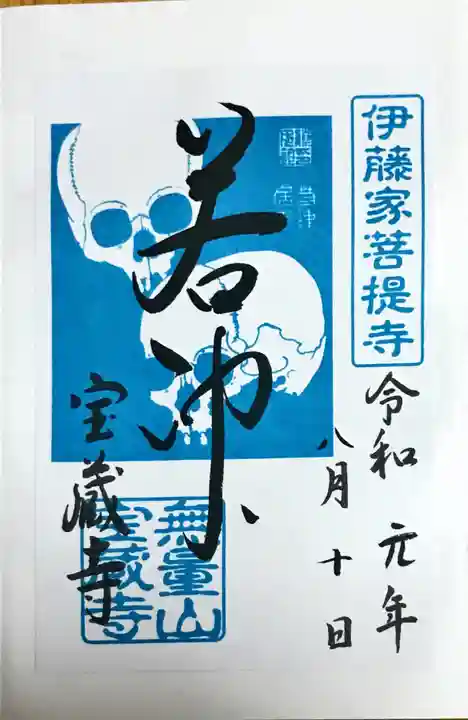 伊藤家菩提寺
令和元年
八月十日
若冲
宝蔵寺
無量山
宝蔵寺